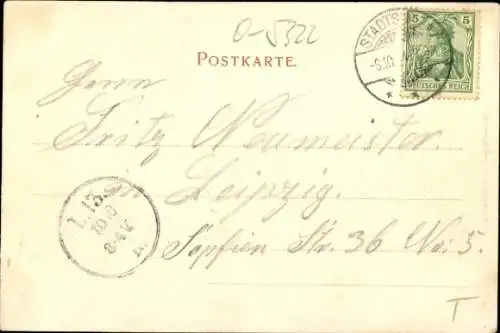 O-5322
POSTKARTE.
STADTS
5 5
-5.10.
DEUTSCHES REICH
Herrn
Fritz Neumeister.
in
Leipzig.
Sopfien Str. 36 No: 5.
L. 13.
10.0
3-4